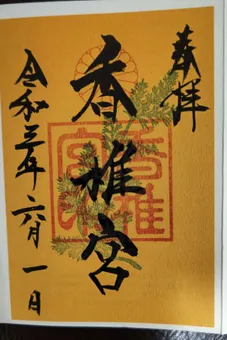 奉拝
香椎宮
令和三年六月一日
香椎宮印